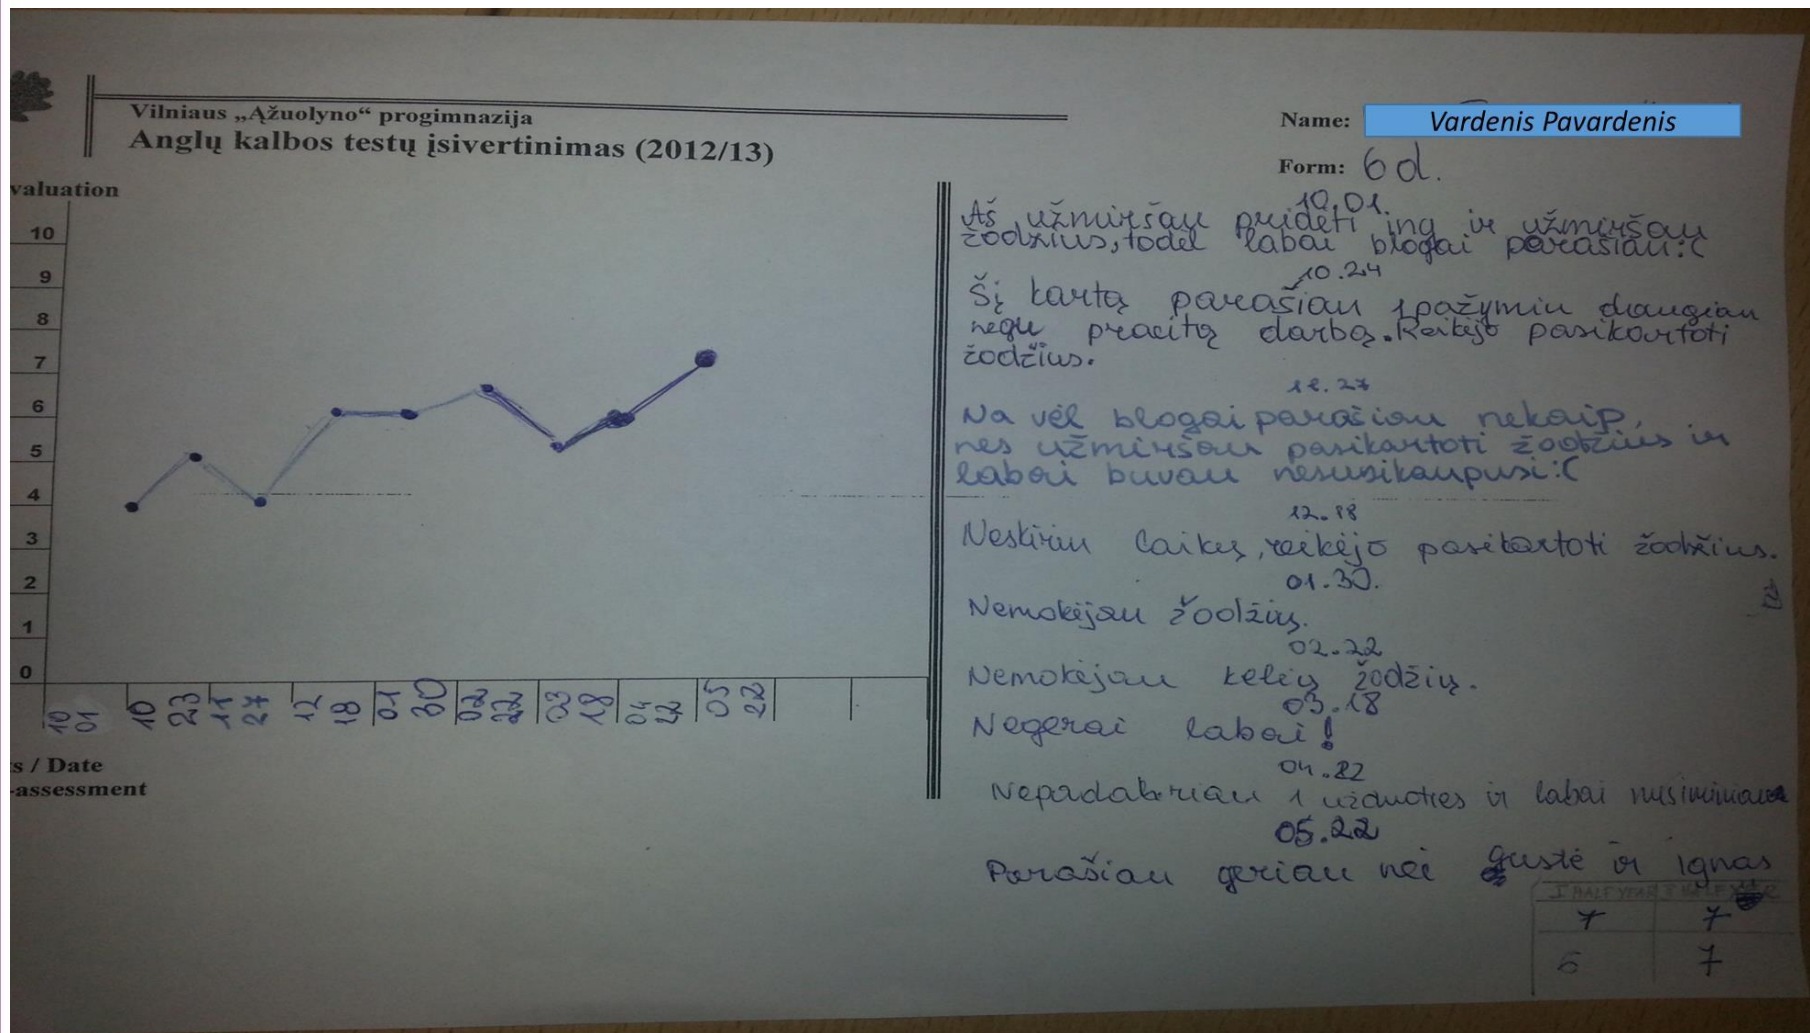 Vilniaus „Ąžuolyno“ progimnazija
Anglų kalbos testų įsivertinimas (2012/13)
Name: Vardenis Pavardenis
Form: 6d.
valuation
10
9
8
7
6
5
4
3
2
1
0
10 01
10 23
11 27
12 18
01 30
02 22
03 18
04 22
05 22
s / Date
-assessment
10.01.
Aš užmiršau pridėti ing ir užmiršau
žodžius, todėl labai blogai parašiau:(
10.24
Šį kartą parašiau 1 pažymiu daugiau
negu praeitą darbą. Reikėjo pasikartoti
žodžius.
11.27
Na vėl blogai parašiau nekaip,
nes užmiršau pasikartoti žodžius ir
labai buvau nesusikaupusi:(
12.18
Neskiriu laikų, reikėjo pasikartoti žodžius.
01.30.
Nemokėjau žodžių.
02.22
Nemokėjau kelių žodžių.
03.18
Negerai labai!
04.22
Nepadabariau 1 užduoties ir labai nusiminiau
05.22
Parašiau geriau nei gustė ir ignas
I HALF YEAR
7 7
6 7